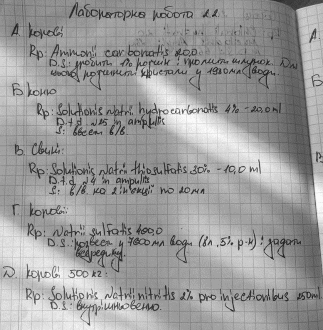 Лабораторна робота 22.
А. корові
Rp: Ammonii carbonatis 20,0
D.S.: зробити 1% розчин і промити шлунок. Для
цього розчинити кристали у 1980мл води.
Б. коню
Rp: Solutionis Natrii hydrocarbonatis 4% - 20.0 ml
D.t.d. №25 in ampulis
S.: ввести в/в.
В. Свині:
Rp: Solutionis Natrii thiosulfatis 30% - 10,0 ml
D.t.d. №4 in ampulis
S.: в/в. на 2 ін'єкції по 20мл
Г. корові:
Rp: Natrii sulfatis 400,0
D.S.: розвести у 7600мл води і задати
всередину.
Д. корові 500 кг:
Rp: Solutionis Natrii nitritis 2% pro injectionibus 250ml
D.S.: внутрішньовенно.